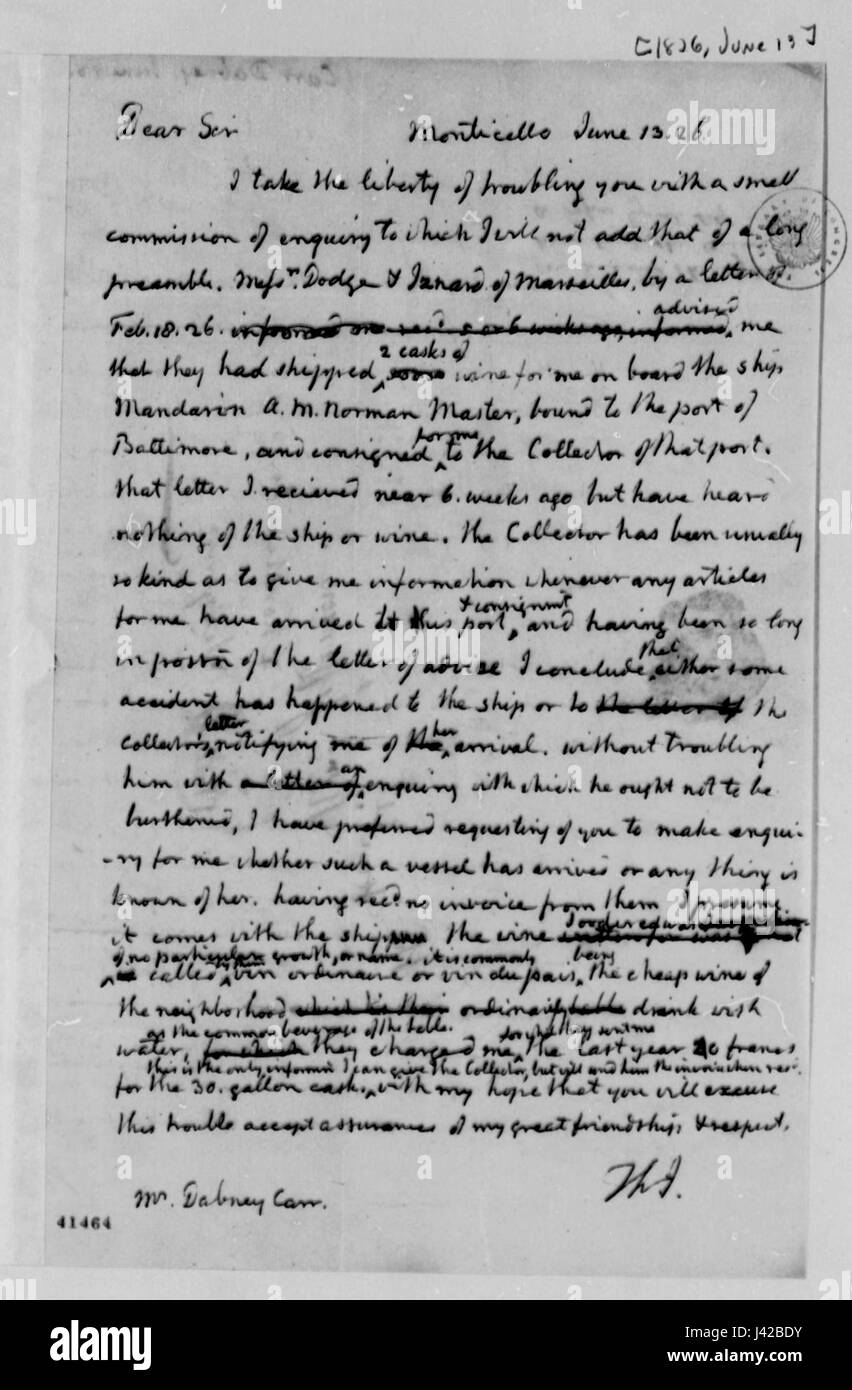 [1826, June 13]
Dear Sir Monticello June 13. 26.
I take the liberty of troubling you with a small
commission of enquiry to which I will not add that of a long
preamble. Messrs. Dodge & Oxnard of Marseilles, by a letter of
Feb. 18. 26. informed advised me
that they had shipped 2 casks of some wine for me on board the ship
Mandarin A. M. Norman Master, bound to the port of
Baltimore, and consigned for me to the Collector of that port.
that letter I recieved near 6. weeks ago but have heard
nothing of the ship or wine. the Collector has been usually
so kind as to give me information whenever any articles
for me have arrived at this port, & consignmt and having been so long
in possn of the letter of advise I conclude that either some
accident has happened to the ship or to the letter of the
collector's letter notifying me of the her arrival. without troubling
him with a letter of an enquiry with which he ought not to be
burthened, I have preferred requesting of you to make enqui-
-ry for me whether such a vessel has arrived or any thing is
known of her. having recd. no invoice from them I presume
it comes with the ship the wine I ordered was
of no particular growth, or name. it is commonly
called vin ordinaire or vin du pais, being the cheap wine of
the neighborhood which is their ordinary table drink with
water, as the common beverage of the table. for which they charged me, for what they sent me the last year 20 francs
this is the only informn I can give the Collector, but will send him the invoice when recd.
for the 30. gallon cask, with my hope that you will excuse
this trouble accept assurances of my great friendship & respect.
Th J.
Mr. Dabney Carr.
41464
alamy
alamy
Image ID: J42BDY
www.alamy.com